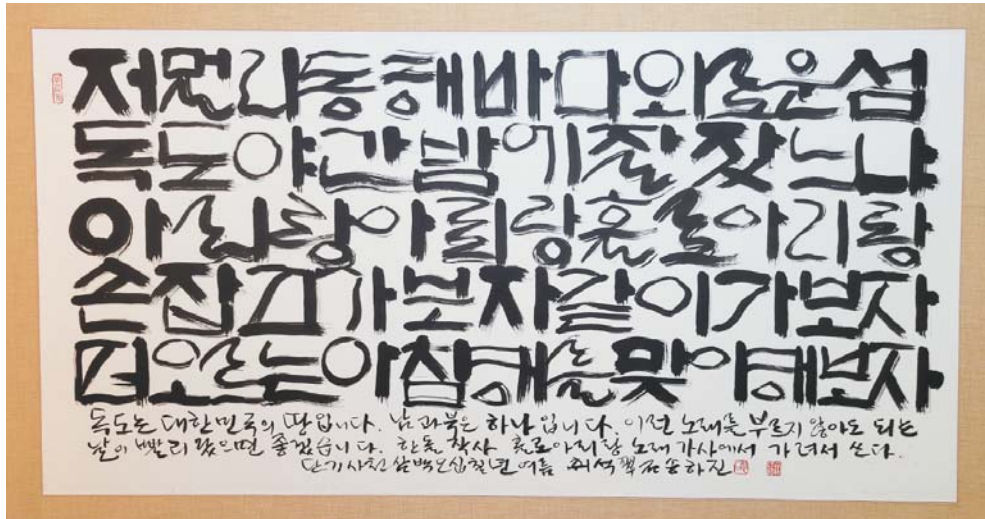 저멀리동해바다외로운섬
독도야간밤에잘잤느냐
아리랑아리랑홀로아리랑
손잡고가보자같이가보자
떠오르는아침해를맞이해보자
독도는 대한민국의 땅입니다. 남과북은 하나입니다. 이런 노래를 부르지 않아도 되는
날이 빨리 왔으면 좋겠습니다. 한돌 작사 홀로아리랑 노래가사에서 가려서 쓰다.
단기사천삼백오십칠년여름 취석 송하진